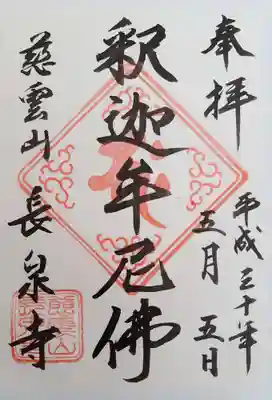 奉拝
平成三十年
五月五日
釈迦牟尼佛
慈雲山 長泉寺